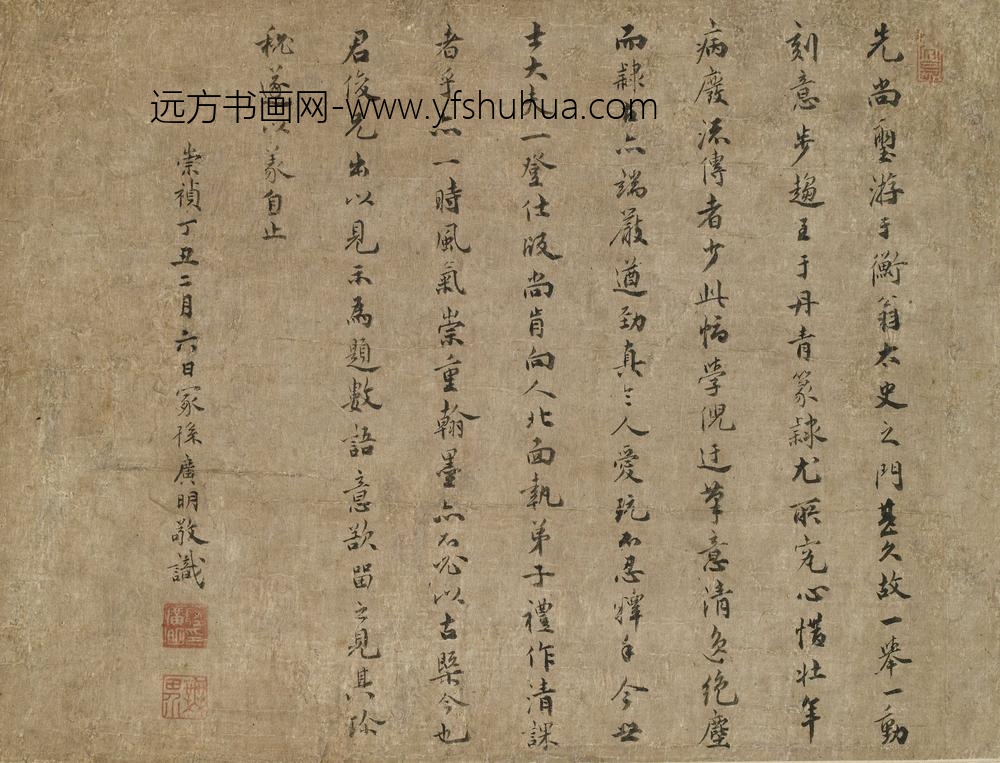 先尚璽游于衡翁太史之門甚久故一舉一動
刻意步趨至于丹青篆隸尤所究心惜壮年
病廢流傳者少此幅學倪迂筆意清逸絶塵
而隸亦端嚴遒勁真令人愛玩不忍釋手今世
士大夫一登仕版尚肯向人北面執弟子禮作清課
者乎亦一時風氣崇重翰墨亦不必以古槩今也
君俊兄出以見示為題數語意欲留之見其珍
秘遂以羨自止
崇禎丁丑二月六日冢孫廣明敬識
远方书画网-www.yfshuhua.com